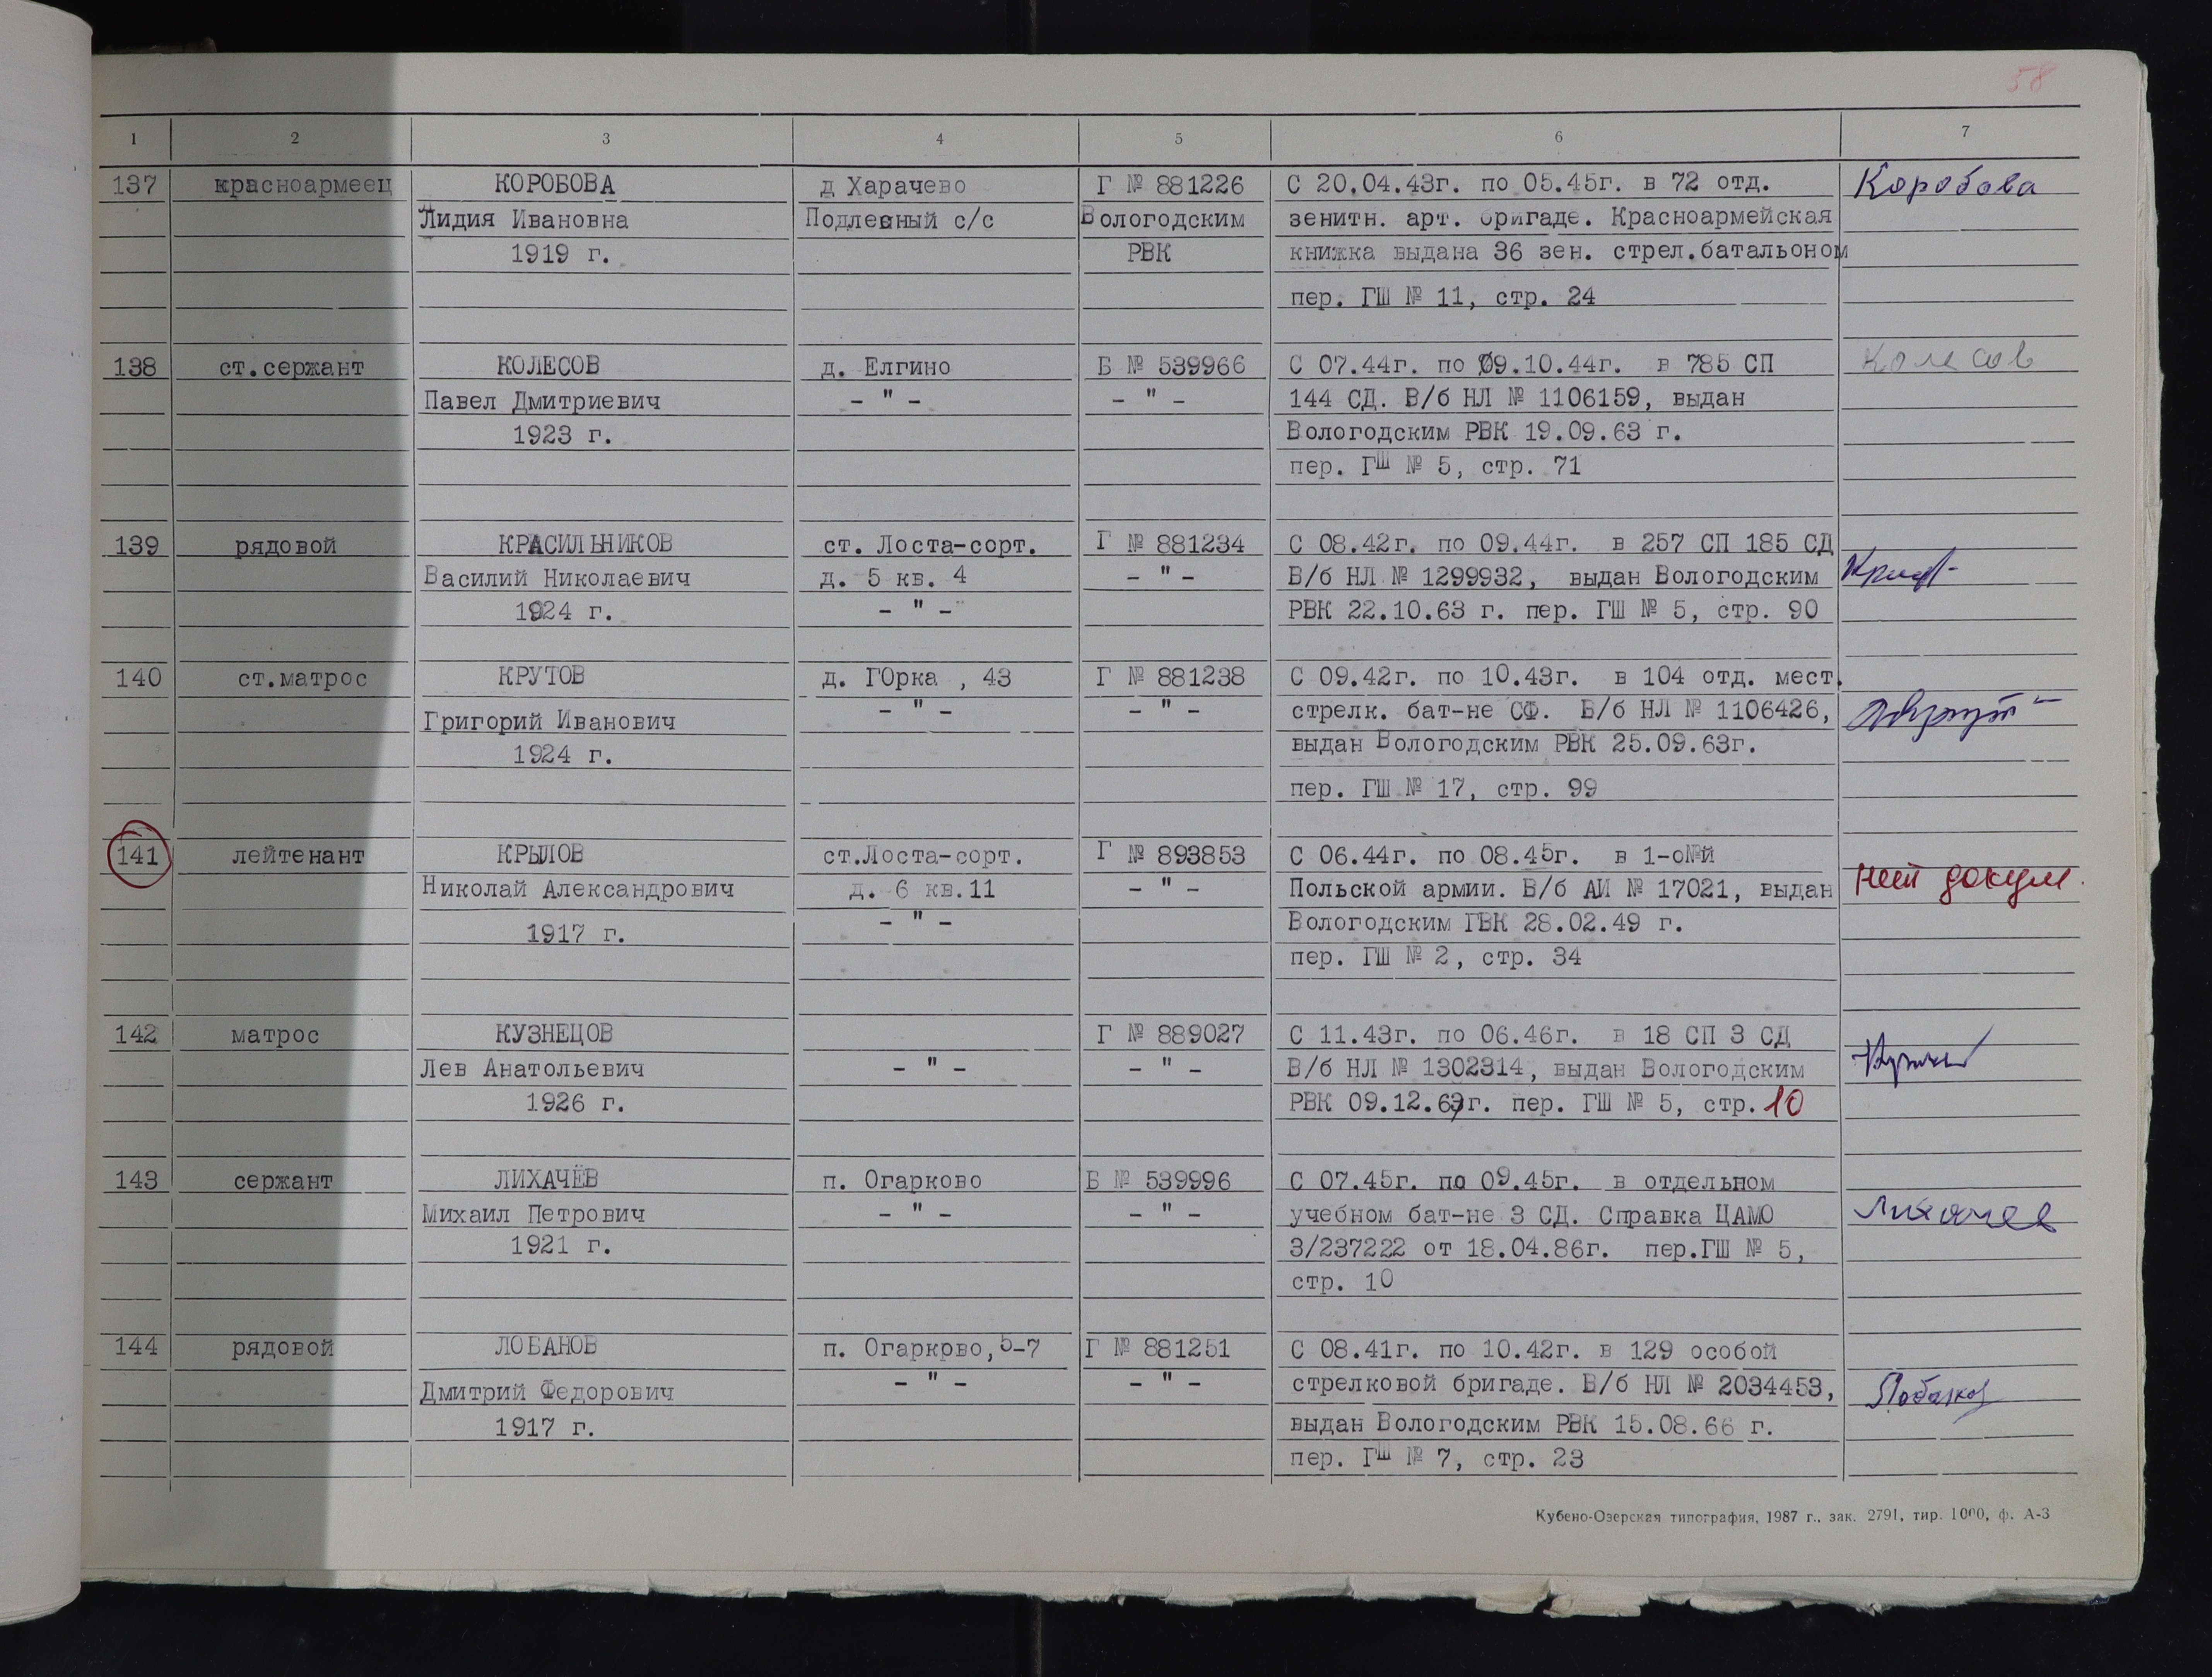 58
1 2 3 4 5 6 7
137 красноармеец КОРОБОВА д Харачево Г № 881226 С 20.04.43г. по 05.45г. в 72 отд. Коробова
Лидия Ивановна Подлесный с/с Вологодским зенитн. арт. бригаде. Красноармейская
1919 г. РВК книжка выдана 36 зен. стрел.батальоном
пер. ГШ № 11, стр. 24
138 ст.сержант КОЛЕСОВ д. Елгино Б № 539966 С 07.44г. по 09.10.44г. в 785 СП Колесов
Павел Дмитриевич - " - - " - 144 СД. В/б НЛ № 1106159, выдан
1923 г. Вологодским РВК 19.09.63 г.
пер. ГШ № 5, стр. 71
139 рядовой КРАСИЛЬНИКОВ ст. Лоста-сорт. Г № 881234 С 08.42г. по 09.44г. в 257 СП 185 СД
Василий Николаевич д. 5 кв. 4 - " - В/б НЛ № 1299932, выдан Вологодским
1924 г. - " - РВК 22.10.63 г. пер. ГШ № 5, стр. 90
140 ст.матрос КРУТОВ д. ГОрка , 43 Г № 881238 С 09.42г. по 10.43г. в 104 отд. мест.
Григорий Иванович - " - - " - стрелк. бат-не СФ. В/б НЛ № 1106426,
1924 г. выдан Вологодским РВК 25.09.63г.
пер. ГШ № 17, стр. 99
141 лейтенант КРЫЛОВ ст.Лоста-сорт. Г № 893853 С 06.44г. по 08.45г. в 1-о№й
Николай Александрович д. 6 кв.11 - " - Польской армии. В/б АИ № 17021, выдан нет докум.
1917 г. - " - Вологодским ГВК 28.02.49 г.
пер. ГШ № 2, стр. 34
142 матрос КУЗНЕЦОВ Г № 889027 С 11.43г. по 06.46г. в 18 СП 3 СД
Лев Анатольевич - " - - " - В/б НЛ № 1302314, выдан Вологодским
1926 г. РВК 09.12.63г. пер. ГШ № 5, стр. 10
143 сержант ЛИХАЧЁВ п. Огарково Б № 539996 С 07.45г. по 09.45г. в отдельном
Михаил Петрович - " - - " - учебном бат-не 3 СД. Справка ЦАМО Лихачев
1921 г. 3/237222 от 18.04.86г. пер.ГШ № 5,
стр. 10
144 рядовой ЛОБАНОВ п. Огарково, 5-7 Г № 881251 С 08.41г. по 10.42г. в 129 особой
Дмитрий Федорович - " - - " - стрелковой бригаде. В/б НЛ № 2034453, Лобанов
1917 г. выдан Вологодским РВК 15.08.66 г.
пер. ГШ № 7, стр. 23
Кубено-Озерская типография, 1987 г., зак. 2791, тир. 1000, ф. А-3